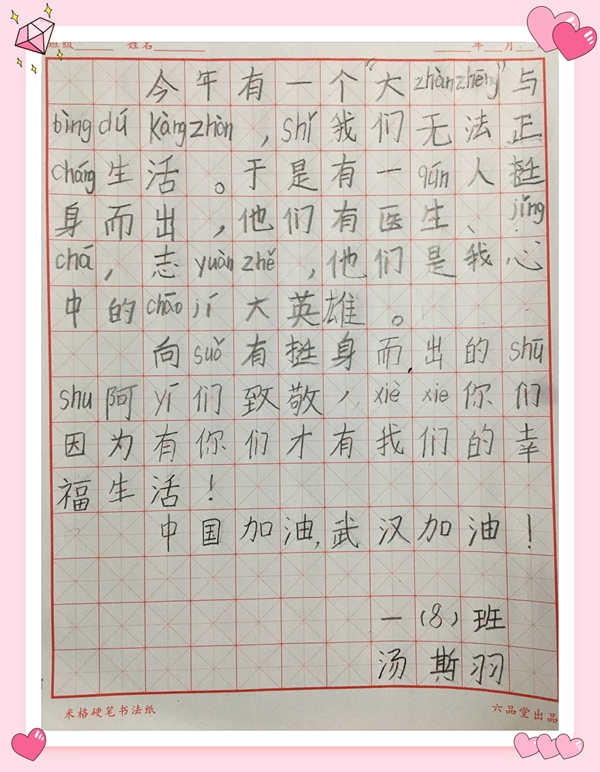 班级 姓名 年 月
今年有一个"大zhànzhēng"与
bìngdú kàngzhàn，shǐ我们无法正
cháng生活。于是有一qún人挺
身而出，他们有医生、jǐng
chá，志yuànzhě，他们是我心
中的chāojí大英雄。
向suǒ有挺身而出的shū
shu阿yí们致敬，xiè xie你们
因为有你们才有我们的幸
福生活！
中国加油，武汉加油！
一（8）班
汤斯羽
米格硬笔书法纸 六品堂出品